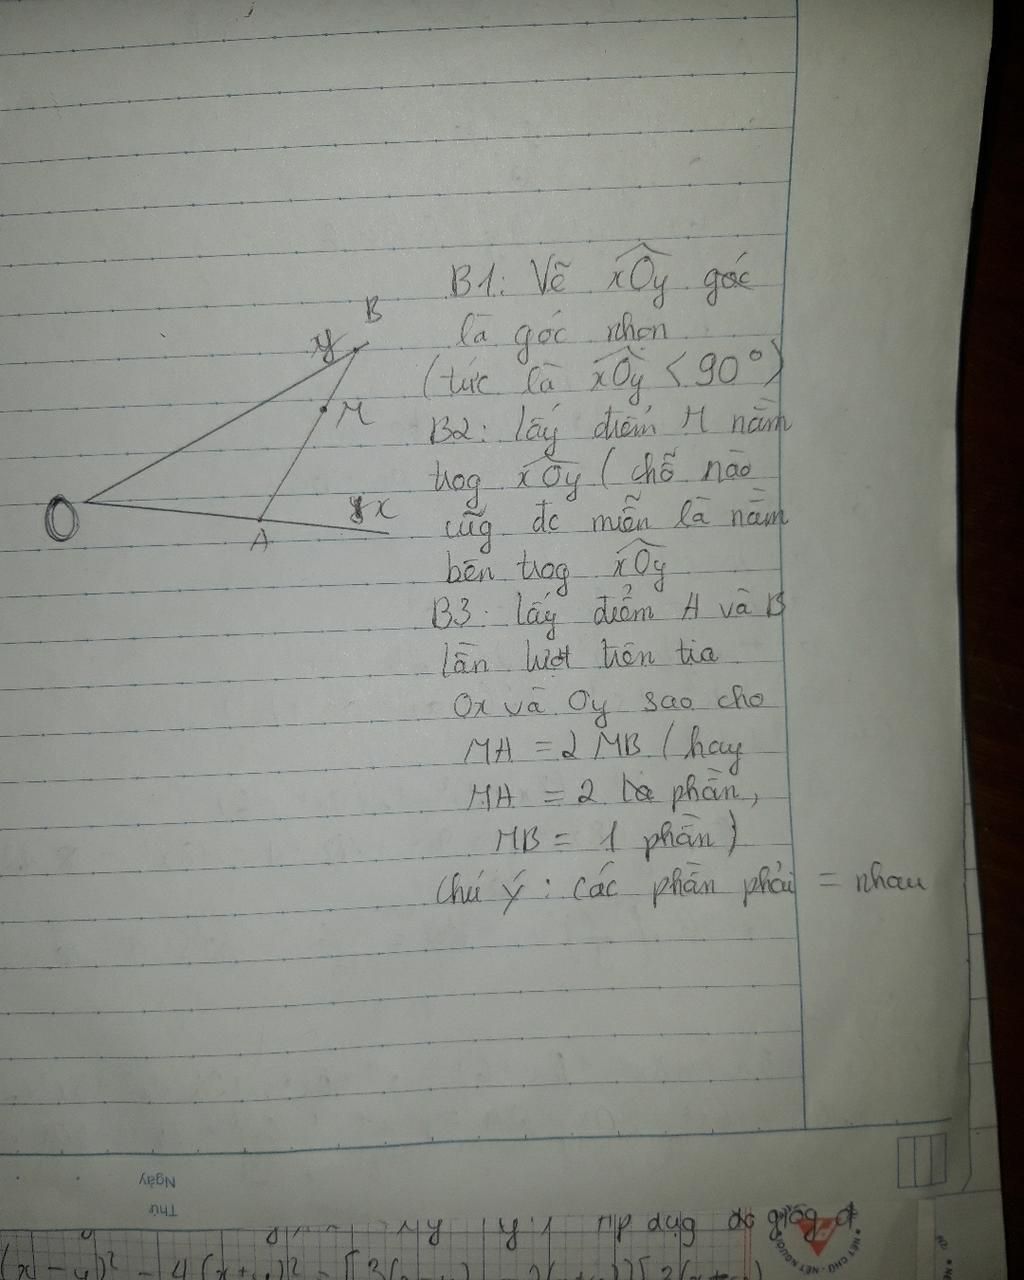 B1: Vẽ xOy góc
là góc nhọn
(tức là xOy < 90°)
B2: lấy điểm M nằm
trog xOy (chỗ nào
cũg đc miễn là nằm
bên trog xOy
B3: lấy điểm A và B
lần lượt trên tia
Ox và Oy sao cho
MA = 2 MB (hay
MA = 2 phần,
MB = 1 phần)
Chú ý: các phần phải = nhau
B
y
M
x
O
A
Ngày
Thứ
dụg
(x-y)² - 4(x+y)²
NÉT CHỮ - NẾT NGƯỜI